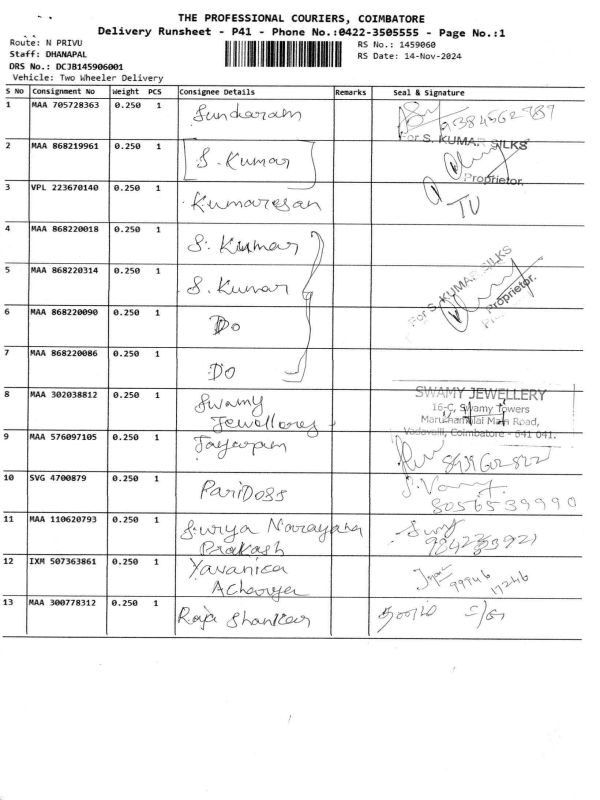 THE PROFESSIONAL COURIERS, COIMBATORE
Delivery Runsheet - P41 - Phone No.:0422-3505555 - Page No.:1
Route: N PRIVU
RS No.: 1459060
Staff: DHANAPAL
RS Date: 14-Nov-2024
DRS No.: DCJB145906001
Vehicle: Two Wheeler Delivery
S No Consignment No Weight PCS Consignee Details Remarks Seal & Signature
1 MAA 705728363 0.250 1 Sundaram
For S. KUMAR SILKS
2 MAA 868219961 0.250 1 S. Kumar
Proprietor.
3 VPL 223670140 0.250 1 Kumaresan
4 MAA 868220018 0.250 1 S. Kumar
For S. KUMAR SILKS
5 MAA 868220314 0.250 1 S. Kumar
Proprietor.
6 MAA 868220090 0.250 1 Do
7 MAA 868220086 0.250 1 Do
8 MAA 302038812 0.250 1 Swamy
Jewellores
SWAMY JEWELLERY
16-C, Swamy Towers
Maruthamalai Main Road,
Vadavalli, Coimbatore - 641 041.
9 MAA 576097105 0.250 1 Jayaram
10 SVG 4700879 0.250 1 PariDoss
8056539990
11 MAA 110620793 0.250 1 Surya Narayana
Prakash
12 IXM 507363861 0.250 1 Yavanica
Acharya
99946
17246
13 MAA 300778312 0.250 1 Raja Shankar